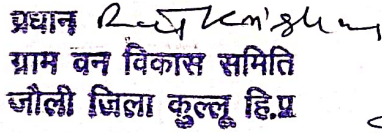 प्रधान
ग्राम वन विकास समिति
जौली जिला कुल्लू हि.प्र